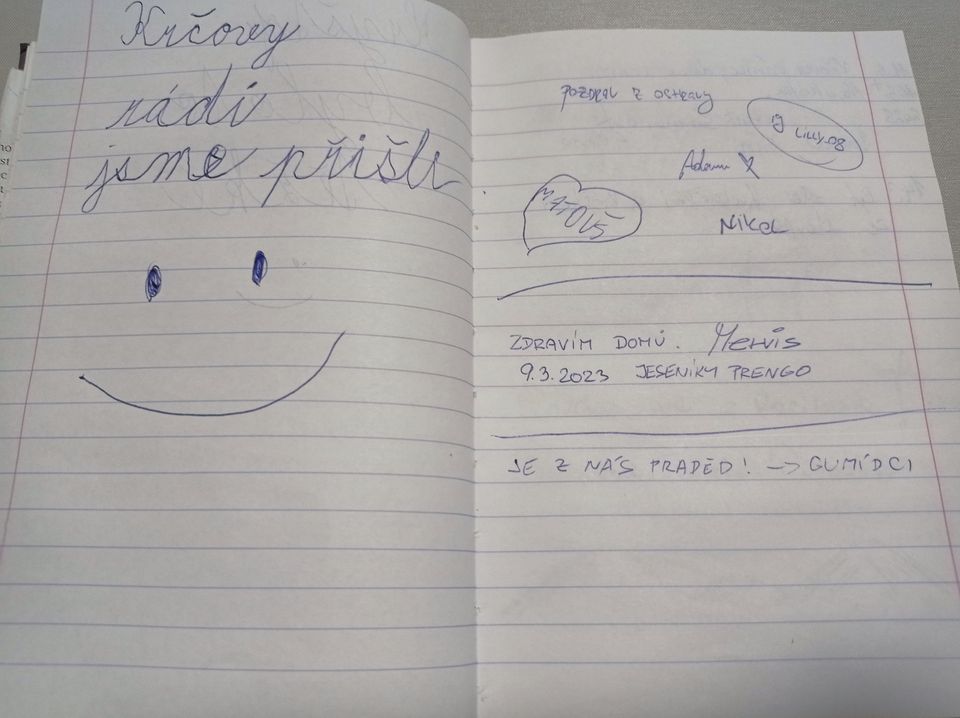 Krčovy
rádi
jsme přišli
pozdrav z ostravy
ig Lilly.08
Adam
MATOUŠ
Nikol
ZDRAVÍM DOMŮ.
9.3.2023 JESENÍKY PRENGO
JE Z NÁS PRADĚD! -> GUMÍDCI